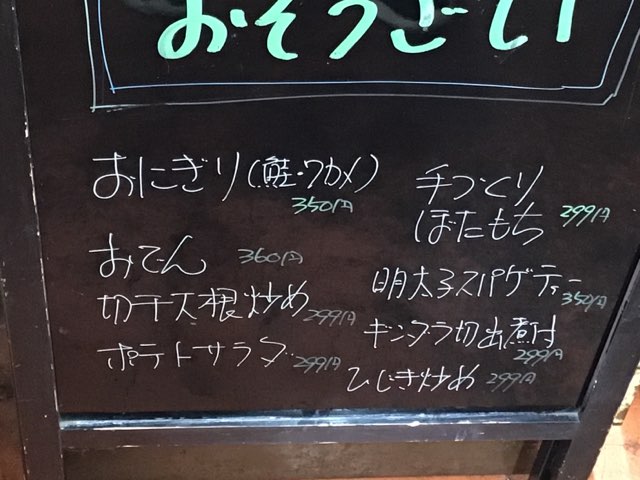 おそうざい
おにぎり(鮭・ワカメ)
350円
おでん 360円
切干大根炒め 299円
ポテトサラダ 299円
手づくり
ぼたもち 299円
明太子スパゲティー
350円
ギンダラ切出煮付
299円
ひじき炒め 299円